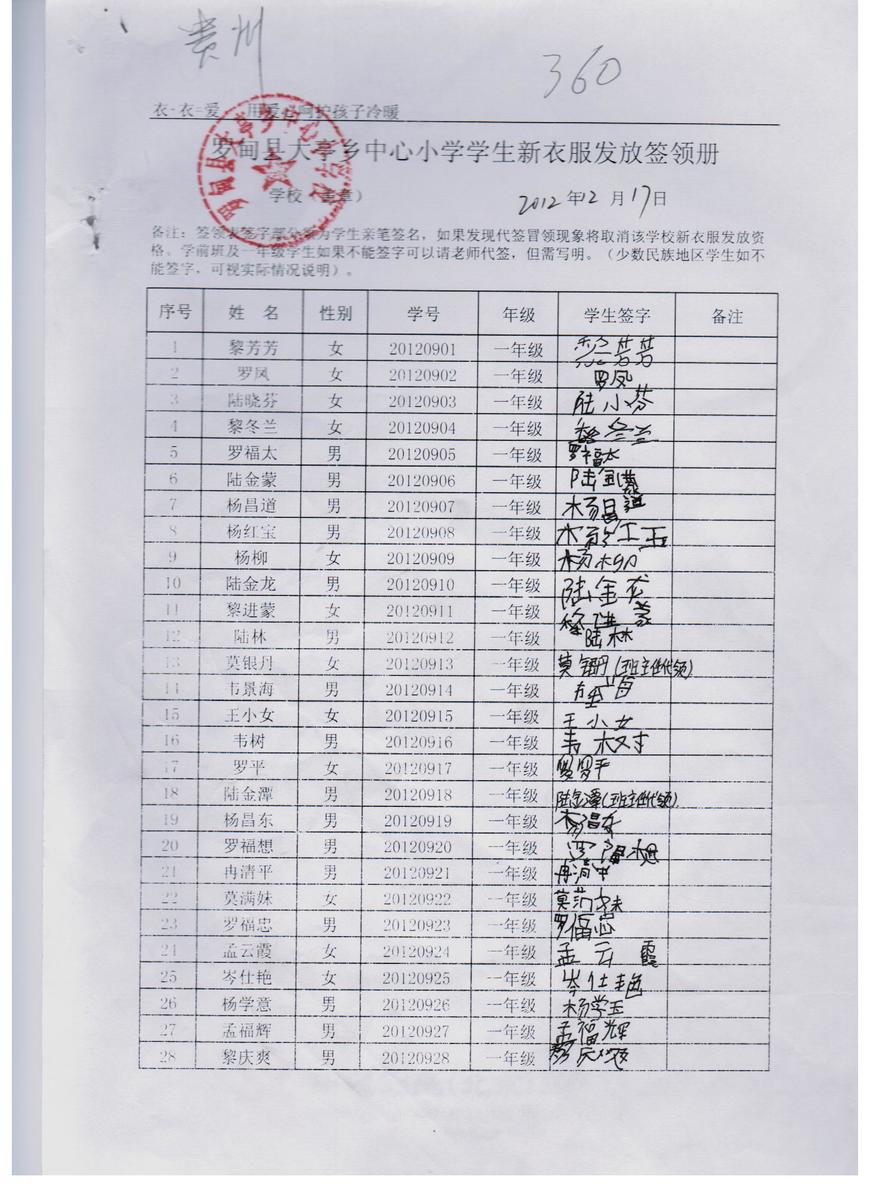 贵州
360
衣+衣=爱 用爱心呵护孩子冷暖
罗甸县大亭乡中心小学学生新衣服发放签领册
学校(盖章) 2012年12月17日
备注:签领表签字部分须为学生亲笔签名,如果发现代签冒领现象将取消该学校新衣服发放资
格。学前班及一年级学生如果不能签字可以请老师代签,但需写明。(少数民族地区学生如不
能签字,可视实际情况说明)。
序号 姓 名 性别 学号 年级 学生签字 备注
1 黎芳芳 女 20120901 一年级 黎芳芳
2 罗凤 女 20120902 一年级 罗凤
3 陆晓芬 女 20120903 一年级 陆小芬
4 黎冬兰 女 20120904 一年级 黎冬兰
5 罗福太 男 20120905 一年级 罗福太
6 陆金蒙 男 20120906 一年级 陆金蒙
7 杨昌道 男 20120907 一年级 杨昌道
8 杨红宝 男 20120908 一年级
9 杨柳 女 20120909 一年级 杨柳
10 陆金龙 男 20120910 一年级 陆金龙
11 黎进蒙 女 20120911 一年级 黎进蒙
12 陆林 男 20120912 一年级 陆林
13 莫银丹 女 20120913 一年级 莫银丹(班主任代领)
14 韦景海 男 20120914 一年级
15 王小女 女 20120915 一年级 王小女
16 韦树 男 20120916 一年级 韦树
17 罗平 女 20120917 一年级 罗平
18 陆金潭 男 20120918 一年级 陆金潭(班主任代领)
19 杨昌东 男 20120919 一年级 杨昌东
20 罗福想 男 20120920 一年级 罗福想
21 冉清平 男 20120921 一年级 冉清平
22 莫满妹 女 20120922 一年级 莫满妹
23 罗福忠 男 20120923 一年级 罗福忠
24 孟云霞 女 20120924 一年级 孟云霞
25 岑仕艳 女 20120925 一年级 岑仕艳
26 杨学意 男 20120926 一年级 杨学玉
27 孟福辉 男 20120927 一年级 孟福辉
28 黎庆爽 男 20120928 一年级